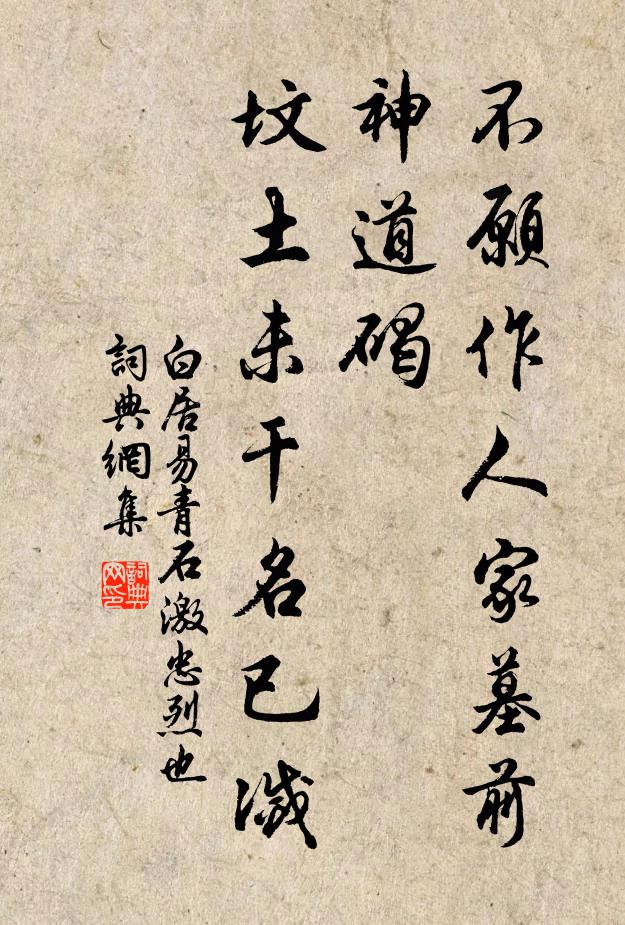 不願作人家墓前
神道碣
坟土未干名已滅
白居易青石激忠烈也
詞典網集
詞典网印